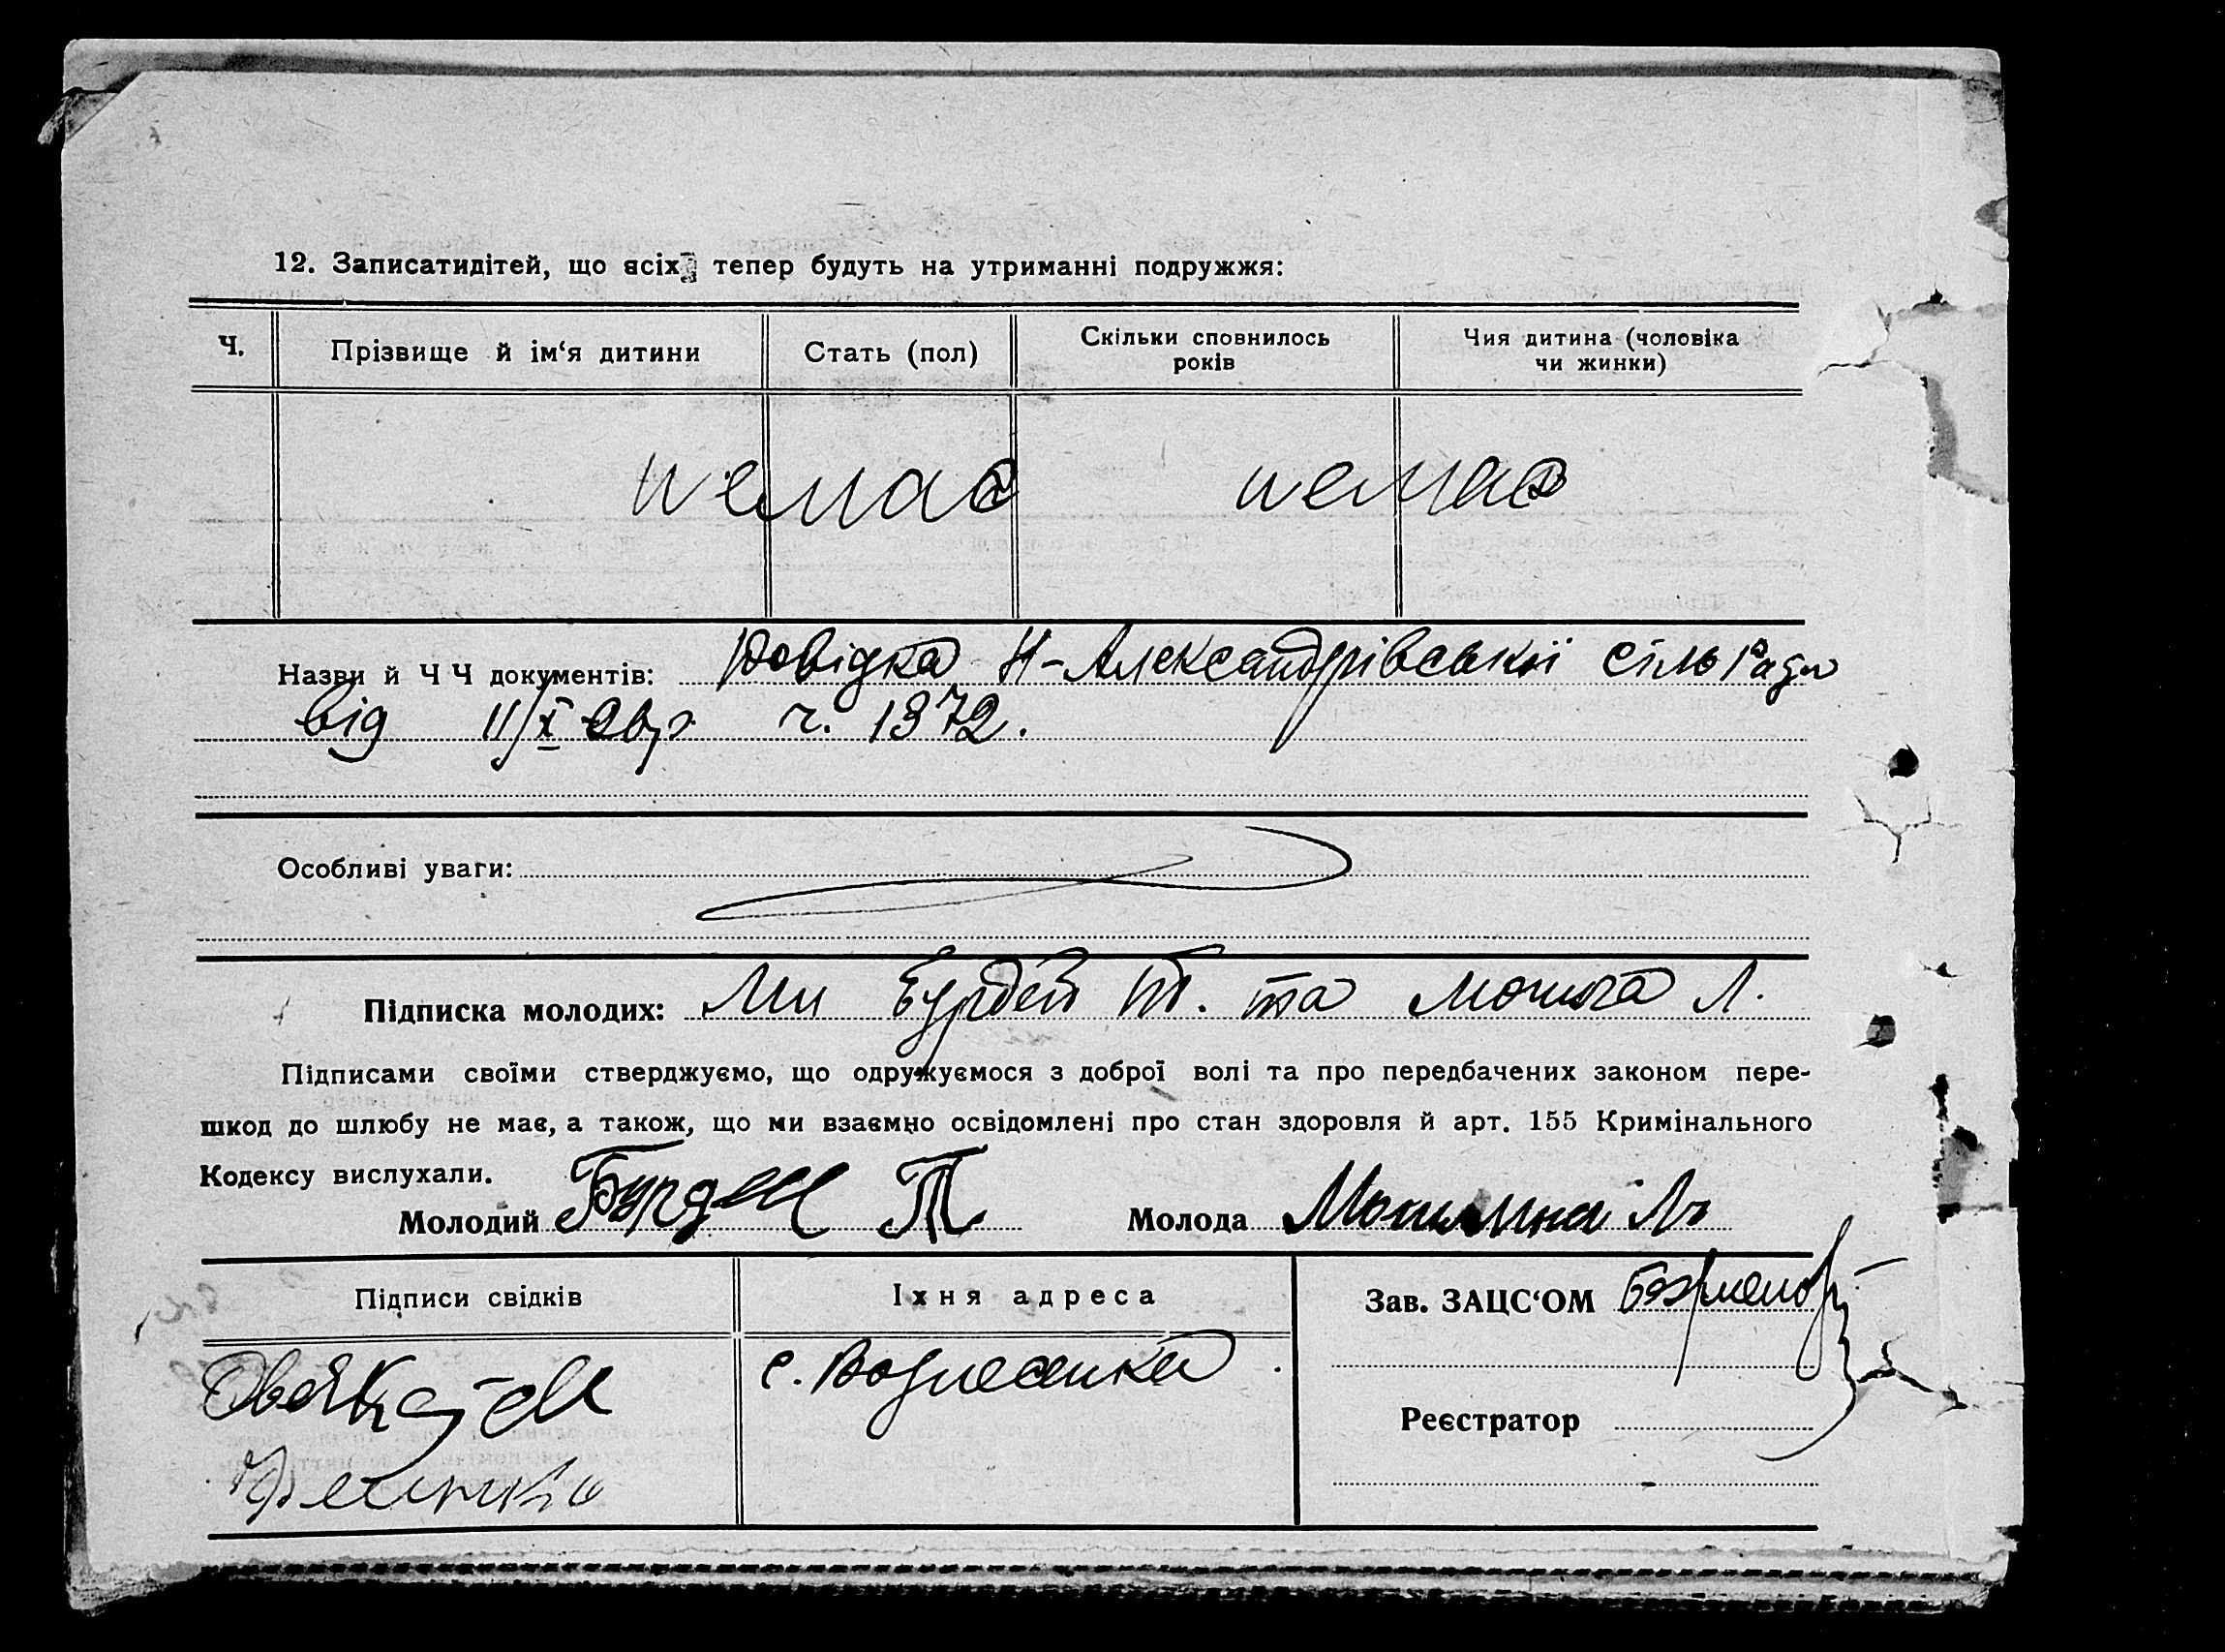 12. Записатидітей, що всіх тепер будуть на утриманні подружжя:
Ч. Прізвище й ім‘я дитини Стать (пол) Скільки сповнилось років Чия дитина (чоловіка чи жинки)
немає немає
Назви й Ч Ч документів: Довідка Н-Александрівської сільРади
від 11/X 26 р ч. 1372.
Особливі уваги:
Підписка молодих: Ми Бурдей Т. та Л.
Підписами своїми стверджуємо, що одружуємося з доброї волі та про передбачених законом пере-
шкод до шлюбу не має, а також, що ми взаємно освідомлені про стан здоровля й арт. 155 Кримінального
Кодексу вислухали.
Молодий Бурдей Т Молода Л
Підписи свідків Їхня адреса Зав. ЗАЦС‘ОМ
с. Вознесенка
Реєстратор